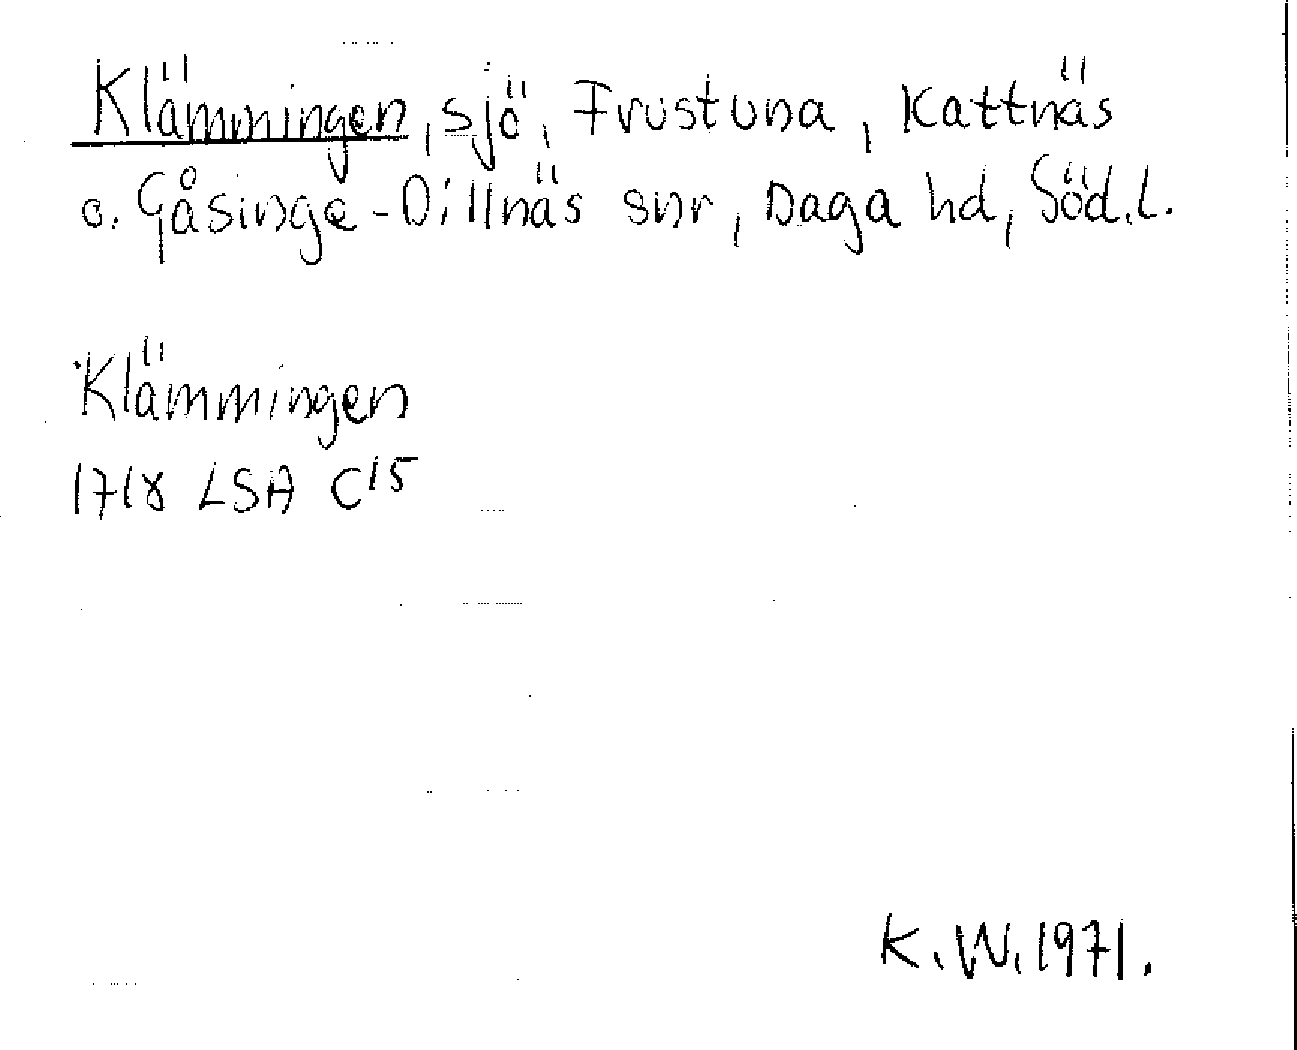 Klämmingen, sjö, Frustuna, Kattnäs
o. Gåsinge-Dillnäs snr, Daga hd, Söd.l.
Klämmingen
1718 LSA C15
K.W.1971.